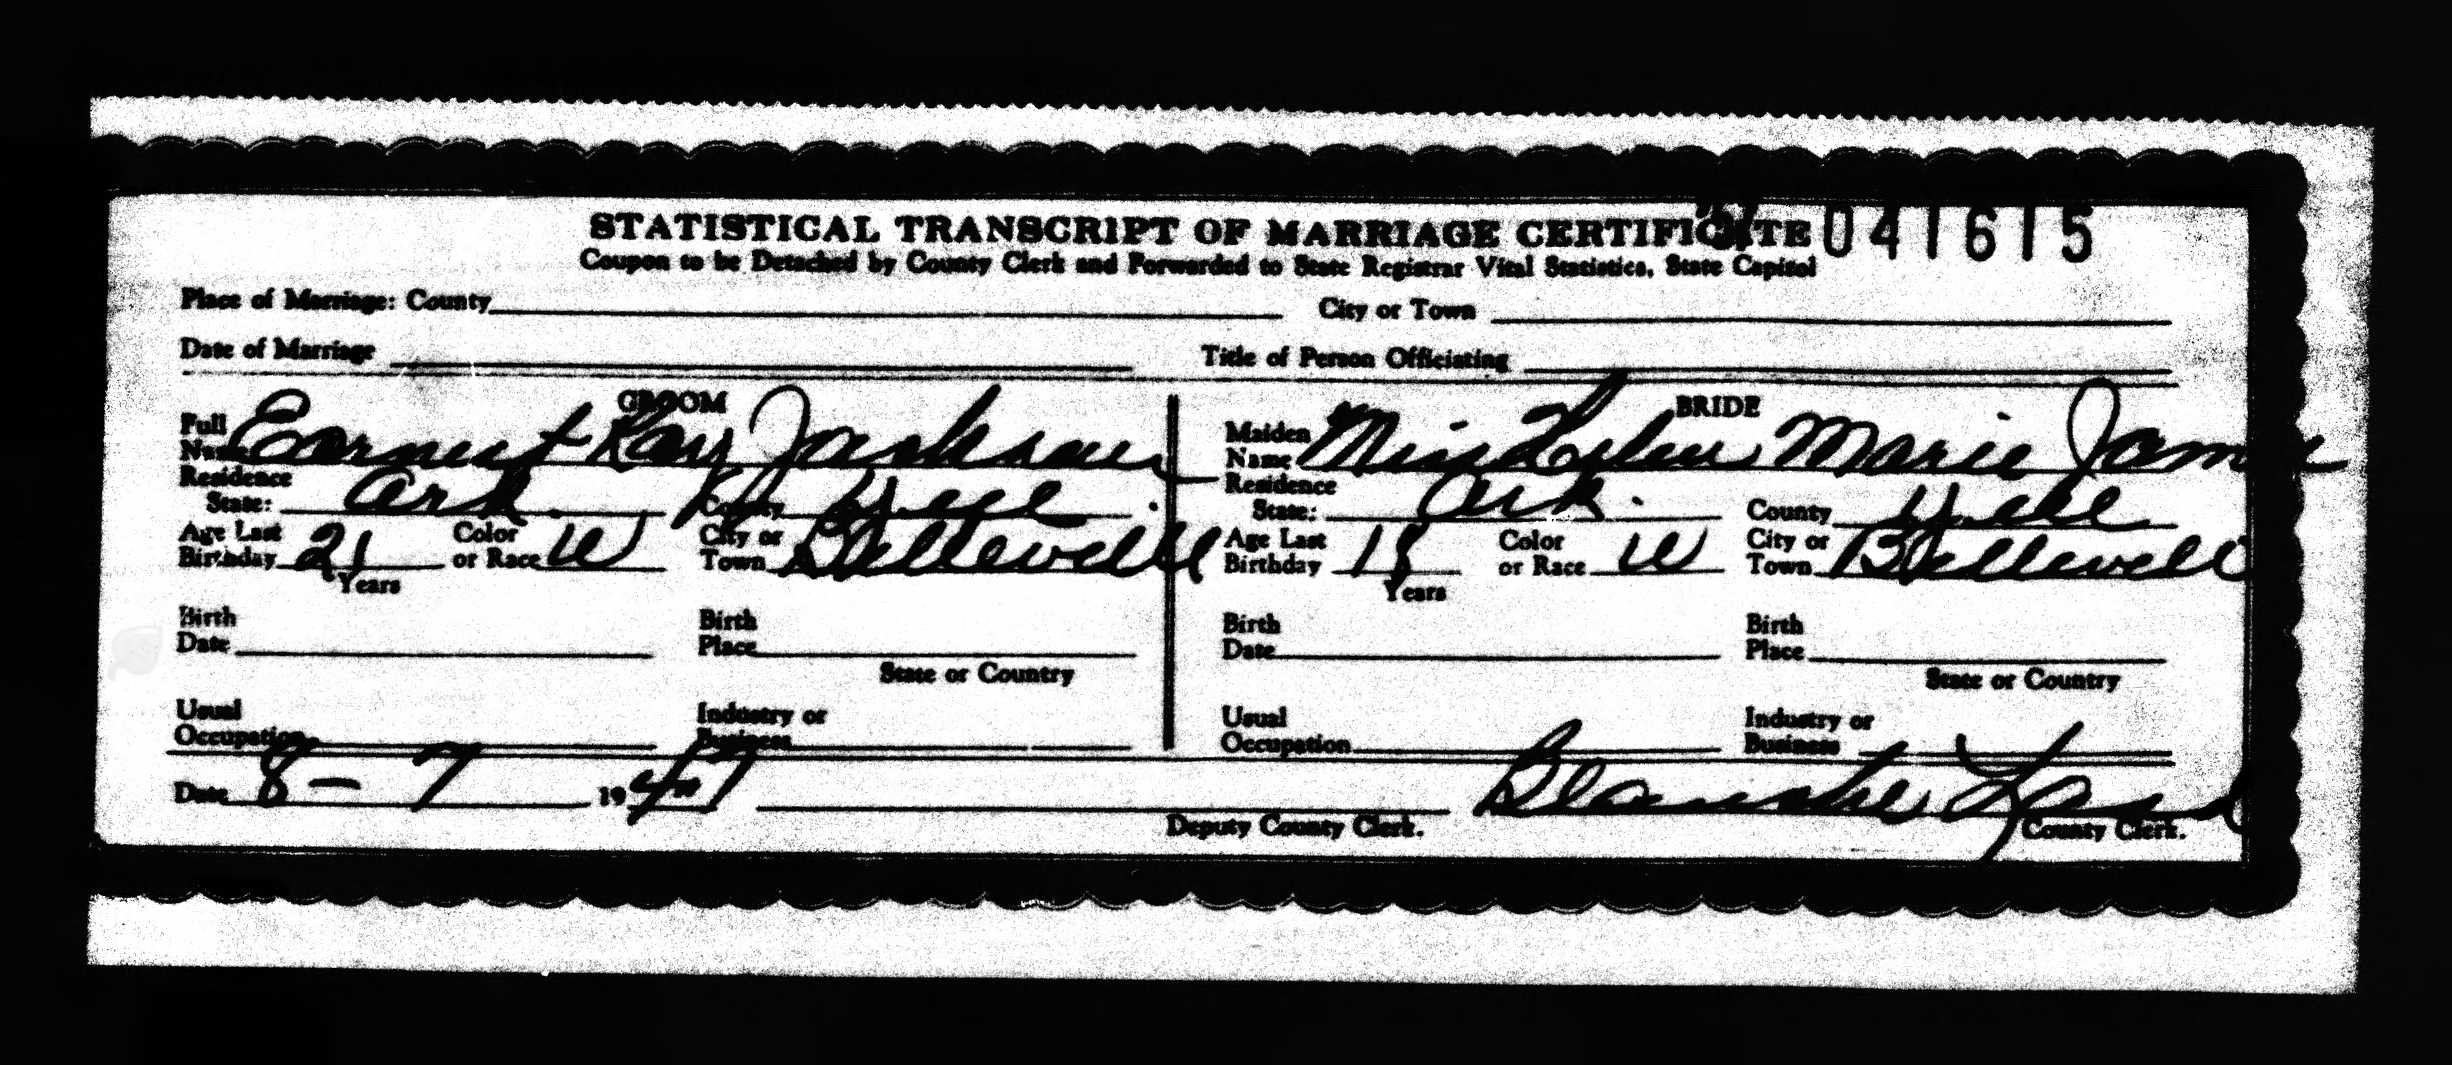 STATISTICAL TRANSCRIPT OF MARRIAGE CERTIFICATE 041615
Coupon to be Detached by County Clerk and Forwarded to State Registrar Vital Statistics, State Capitol
Place of Marriage: County City or Town
Date of Marriage Title of Person Officiating
GROOM BRIDE
Full Name Earnest Ray Jackson Maiden Name Miss Helen Marie James
Residence State: Ark. County Yell Residence State: Ark. County Yell
Age Last Birthday 21 Years Color or Race W City or Town Belleville Age Last Birthday 18 Years Color or Race W City or Town Belleville
Birth Date Birth Place Birth Date Birth Place
State or Country State or Country
Usual Occupation Industry or Business Usual Occupation Industry or Business
Date 8-7 1947 Blanche
Deputy County Clerk. County Clerk.